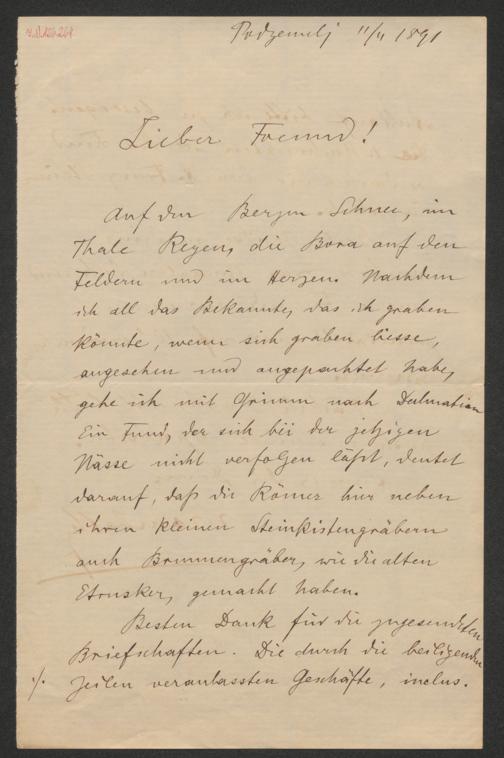 Podzemelj 11/4 1891
Lieber Freund!
Auf den Bergen Schnee, im
Thale Regen, die Bora auf den
Feldern und im Herzen. Nachdem
ich all das Bekannte, das ich graben
könnte, wenn sich graben liesse,
angesehen und angepachtet habe,
gehe ich mit Grimm nach Dalmatien
Ein Fund, der sich bei der jetzigen
Nässe nicht verfolgen läßt, deutet
darauf, daß die Römer hier neben
ihren kleinen Steinkistengräbern
auch Brunnengräber, wie die alten
Etrusker, gemacht haben.
Besten Dank für die zugesendeten
Briefschaften. Die durch die beiligenden
./. Zeilen veranlassten Geschäfte, inclus.